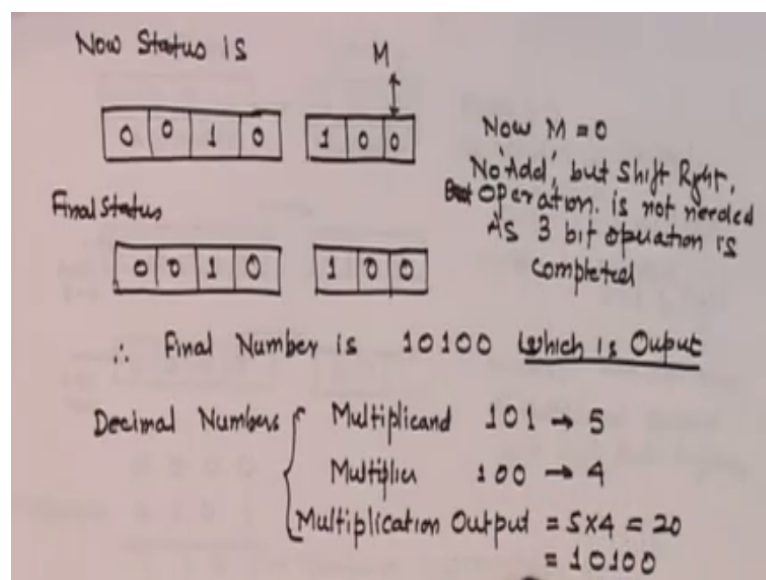 Now Status is
M
0 0 1 0 1 0 0
Now M = 0
No 'Add', but Shift Right,
Operation. is not needed
As 3 bit operation is
completed
Final Status
0 0 1 0 1 0 0
∴ Final Number is 10100 Which is Ouput
Decimal Numbers { Multiplicand 101 → 5
Multiplier 100 → 4
Multiplication Output = 5x4 = 20
= 10100